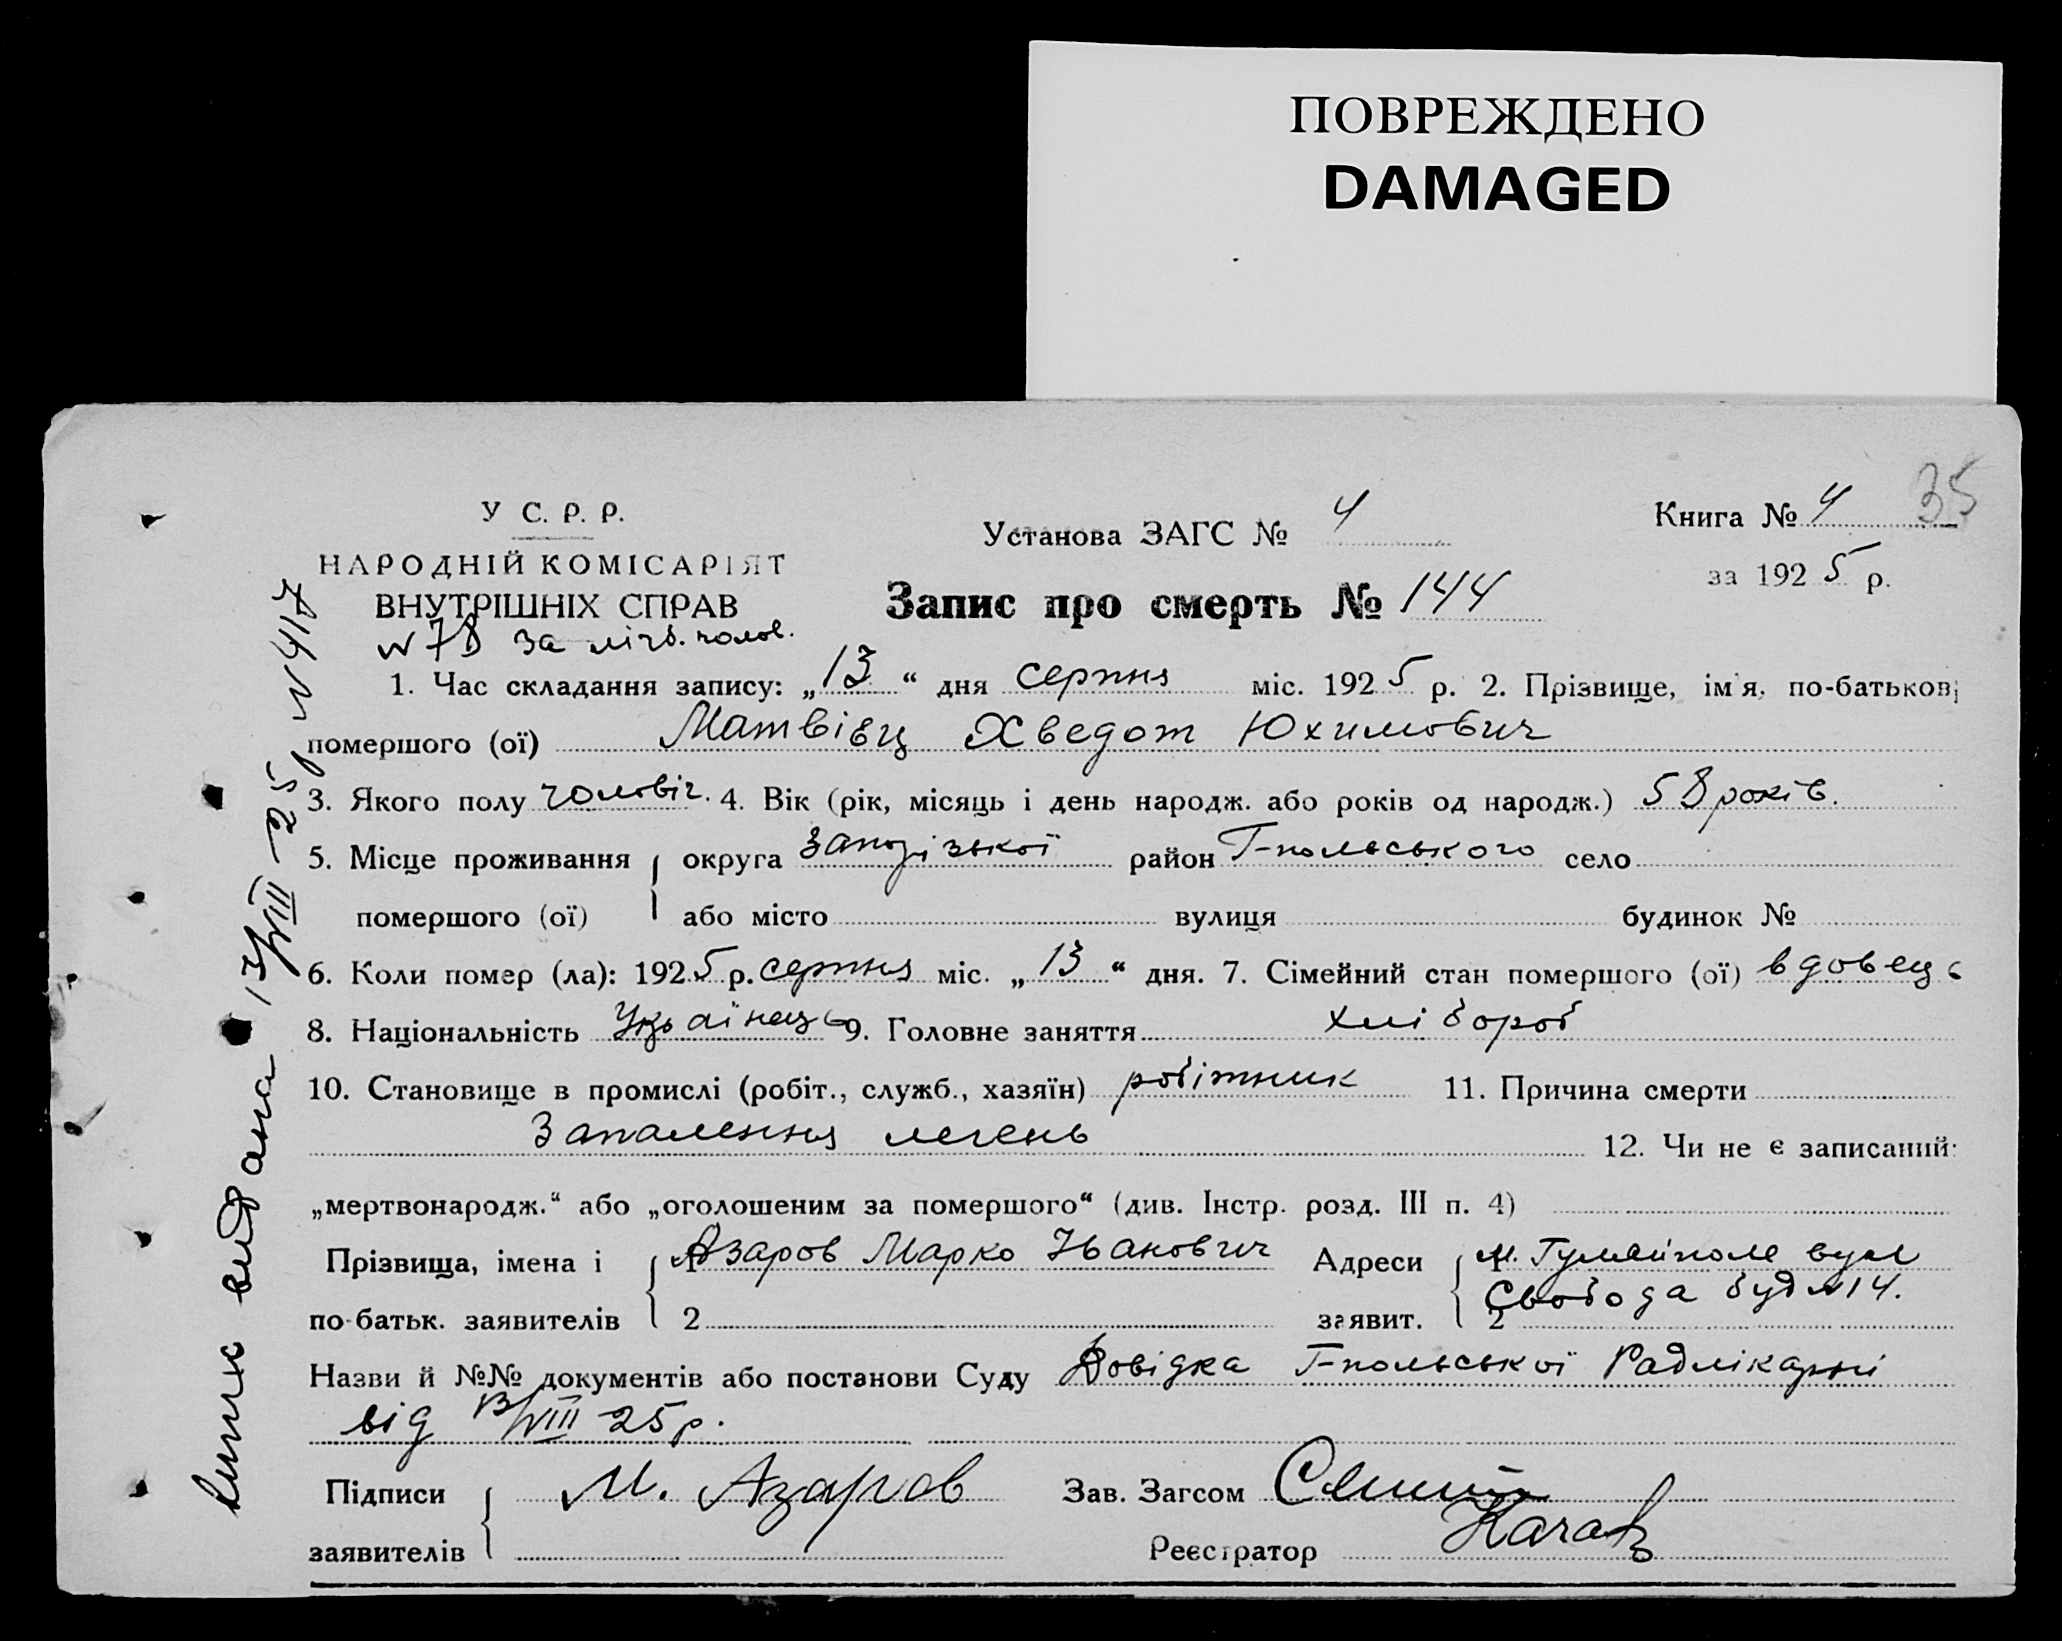 ПОВРЕЖДЕНО
DAMAGED
35
У С. Р. Р.
НАРОДНІЙ КОМІСАРІЯТ
ВНУТРІШНІХ СПРАВ
Установа ЗАГС № 4
Книга № 4
за 1925 р.
Запис про смерть № 144
№ 78 за лічб. чолов.
1. Час складання запису: „13“ дня серпня міс. 1925 р. 2. Прізвище, ім'я, по-батькові
помершого (ої) Матвієц Хведот Юхимович
3. Якого полу чоловіч. 4. Вік (рік, місяць і день народж. або років од народж.) 58 років.
5. Місце проживання округа Запорізької район Г-польського село
помершого (ої) або місто вулиця будинок №
6. Коли помер (ла): 1925 р. серпня міс. „13“ дня. 7. Сімейний стан помершого (ої) вдовець
8. Національність Українець 9. Головне заняття хлібороб
10. Становище в промислі (робіт., служб., хазяїн) робітник 11. Причина смерти
Запалення легень 12. Чи не є записаний:
„мертвонародж.“ або „оголошеним за помершого“ (див. Інстр. розд. III п. 4)
Прізвища, імена і 1 Азаров Марко Іванович Адреси 1 м. Гуляйполе вул
по-батьк. заявителів 2 заявит. 2 Свобода буд № 14.
Назви й №№ документів або постанови Суду Довідка Г-польської Радлікарні
від 13/VIII 25 р.
Підписи М. Азаров Зав. Загсом
заявителів Реєстратор
Випис видана 13/VIII 25 р № 417